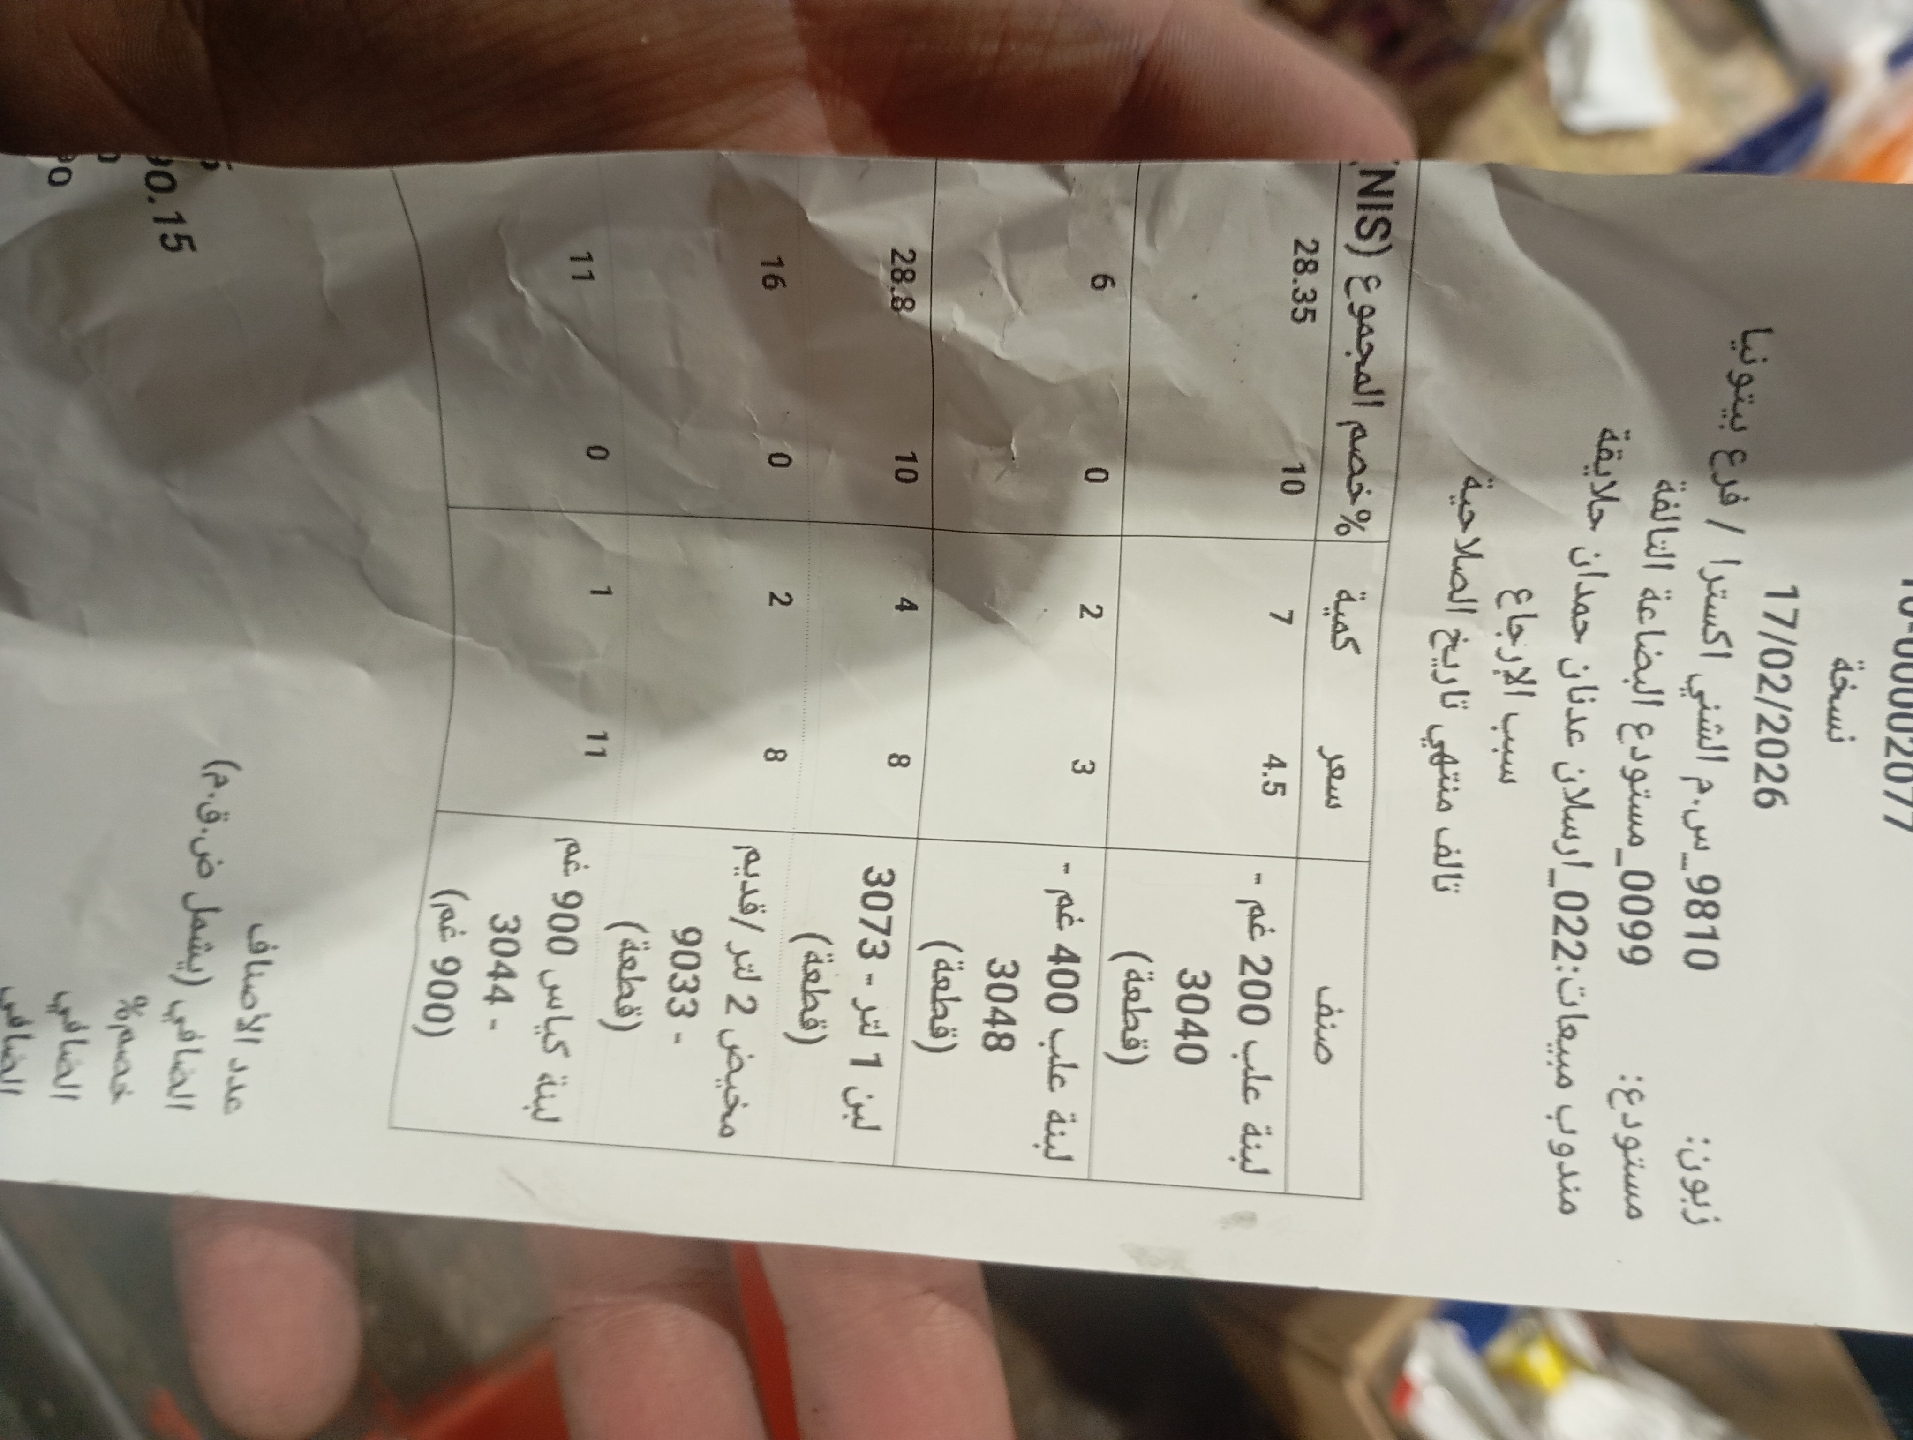 نسخة
17/02/2026
زبون: 9810_س.م الشني اكسترا / فرع بيتونيا
مستودع: 0099_مستودع البضاعة التالفة
مندوب مبيعات:022_ارسلان عدنان حمدان حلايقة
سبب الإرجاع
تالف منتهي تاريخ الصلاحية
صنف سعر كمية %خصم المجموع (NIS
لبنة علب 200 غم - 4.5 7 10 28.35
3040
(قطعة)
لبنة علب 400 غم - 3 2 0 6
3048
(قطعة)
لبن 1 لتر - 3073 8 4 10 28.8
(قطعة)
مخيض 2 لتر /قديم 8 2 0 16
- 9033
(قطعة)
لبنة كياس 900 غم 11 1 0 11
- 3044
(900 غم)
عدد الأصناف
الصافي (يشمل ض.ق.م) 90.15
خصم%
الصافي